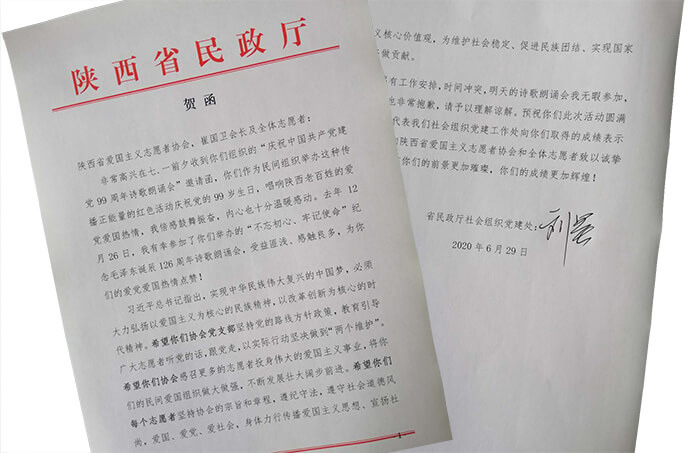 陕西省民政厅
贺函
陕西省爱国主义志愿者协会，崔国卫会长及全体志愿者：
非常高兴在七.一前夕收到你们组织的“庆祝中国共产党建
党99周年诗歌朗诵会”邀请函，你们作为民间组织举办这种传
播正能量的红色活动庆祝党的99岁生日，唱响陕西老百姓的爱
党爱国热情，我倍感鼓舞振奋，内心也十分温暖感动。去年12
月26日，我有幸参加了你们举办的“不忘初心、牢记使命”纪
念毛泽东诞辰126周年诗歌朗诵会，受益匪浅、感触良多，为你
们的爱党爱国热情点赞！
习近平总书记指出，实现中华民族伟大复兴的中国梦，必须
大力弘扬以爱国主义为核心的民族精神，以改革创新为核心的时
代精神。希望你们协会党支部坚持党的路线方针政策，教育引导
广大志愿者听党的话，跟党走，以实际行动坚决做到“两个维护”。
希望你们协会感召更多的志愿者投身伟大的爱国主义事业，将你
们的民间爱国组织做大做强，不断发展壮大阔步前进。希望你们
每个志愿者坚持协会的宗旨和章程，遵纪守法，遵守社会道德风
尚，爱国、爱党、爱社会，身体力行传播爱国主义思想、宣扬社
1
义核心价值观，为维护社会稳定、促进民族团结、实现国家
做贡献。
有工作安排，时间冲突，明天的诗歌朗诵会我无暇参加，
也非常抱歉，请予以理解谅解。预祝你们此次活动圆满
代表我们社会组织党建工作处向你们取得的成绩表示
陕西省爱国主义志愿者协会和全体志愿者致以诚挚
你们的前景更加璀璨，你们的成绩更加辉煌！
省民政厅社会组织党建处：
2020年6月29日